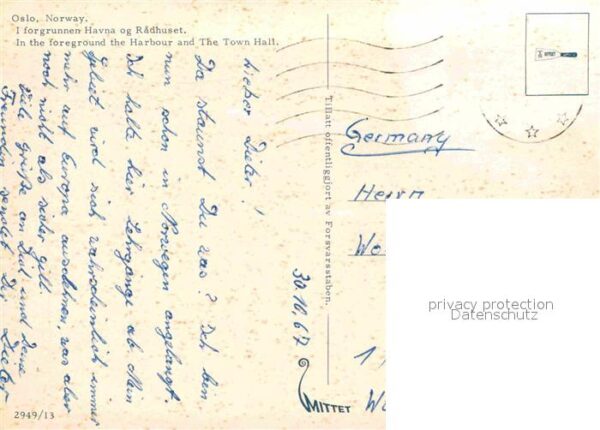 Oslo, Norway.
I forgrunnen Havna og Rådhuset.
In the foreground the Harbour and The Town Hall.
30.10.67
Lieber Dieter!
Da staunst Du was? Ich bin
nun schon in Norwegen angelangt.
Ich halte hier Lehrgänge ab. Mein
wird sich wahrscheinlich immer
mehr auf Europa ausdehnen, was aber
noch nicht als sicher gilt.
Viele Grüße an Dich und Deine
sendet Dir Dieter
Tillatt offentliggjort av Forsvarsstaben.
Germany
Herrn
We
1
We
MITTET
2949/13
MITTET
privacy protection
Datenschutz